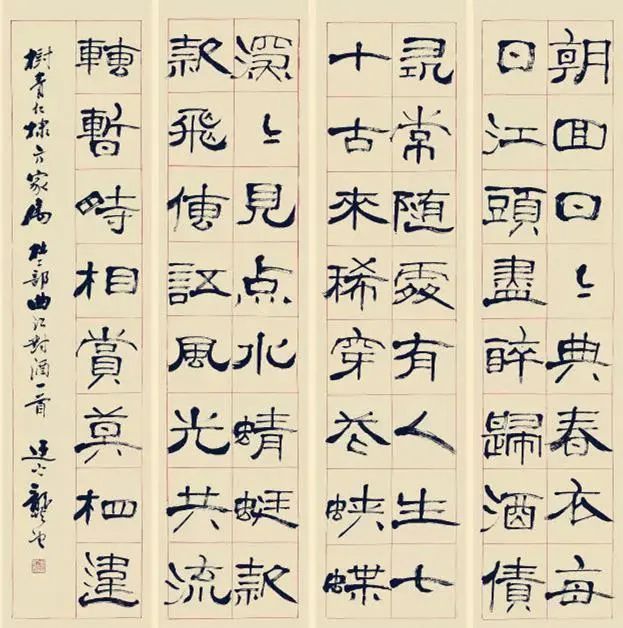 朝囬日〻典春衣每
日江頭盡醉歸酒債
尋常随處有人生七
十古來稀穿花蛺蝶
深〻見点水蜻蜓款
款飛傳語風光共流
轉暫時相賞莫相違
樹青仁棣方家屬 杜工部曲江對酒一首 龔望